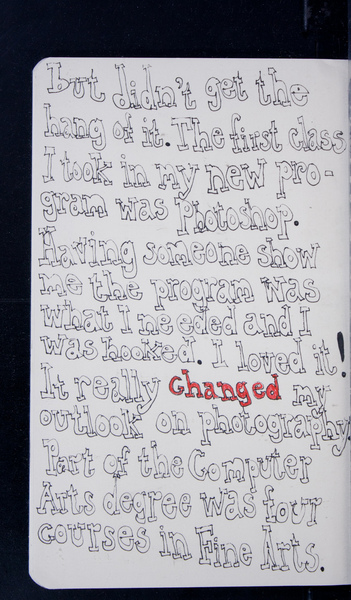 but didn't get the
hang of it. The first class
I took in my new pro-
gram was Photoshop.
Having someone show
me the program was
what I needed and I
was hooked. I loved it!
It really changed my
outlook on photography.
Part of the Computer
Arts degree was four
courses in Fine Arts.